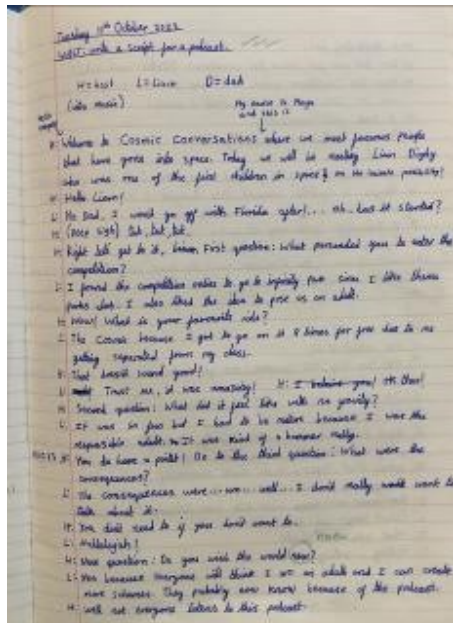 Tuesday 11th October 2022
WALT: write a script for a podcast.
H = host L = Liam D = dad
(intro music)
My name is Maya
and this is
H: Welcome to Cosmic Conversations where we meet famous people
that have gone into space. Today we will be meeting Liam Digby
who was one of the first children in space &
H: Hello Liam!
L: No Dad, I won't go off with Florida after!... oh.. has it started?
H: (deep sigh) Cut, cut, cut.
H: Right let's get to it, First question: What persuaded you to enter the
competition?
L: I found the competition to go to infinity park since I like theme
parks alot. I also liked the idea to pose as an adult.
H: Wow! What is your favourite ride?
L: The Cosmic because I got to go on it 8 times for free due to me
getting separated from my class.
H: That sound good!
L: Trust me, it was amazing! H: I you! Ok then!
H: Second question: What did it feel like with no gravity?
L: It was so fun but I had to be mature because I was the
responsible adult. So it was kind of a bummer really.
H: You do have a point! On to the third question: What were the
consequences?
L: The consequences were... um... well... I don't really want to
talk about it.
H: You don't need to if you don't want to.
L: Hallelujah!
H: question: Do you wish the world now?
L: Yes because everyone will think I am an adult and I can create
more schemes. They probably now know because of the podcast.
H: Well not everyone listens to this podcast.